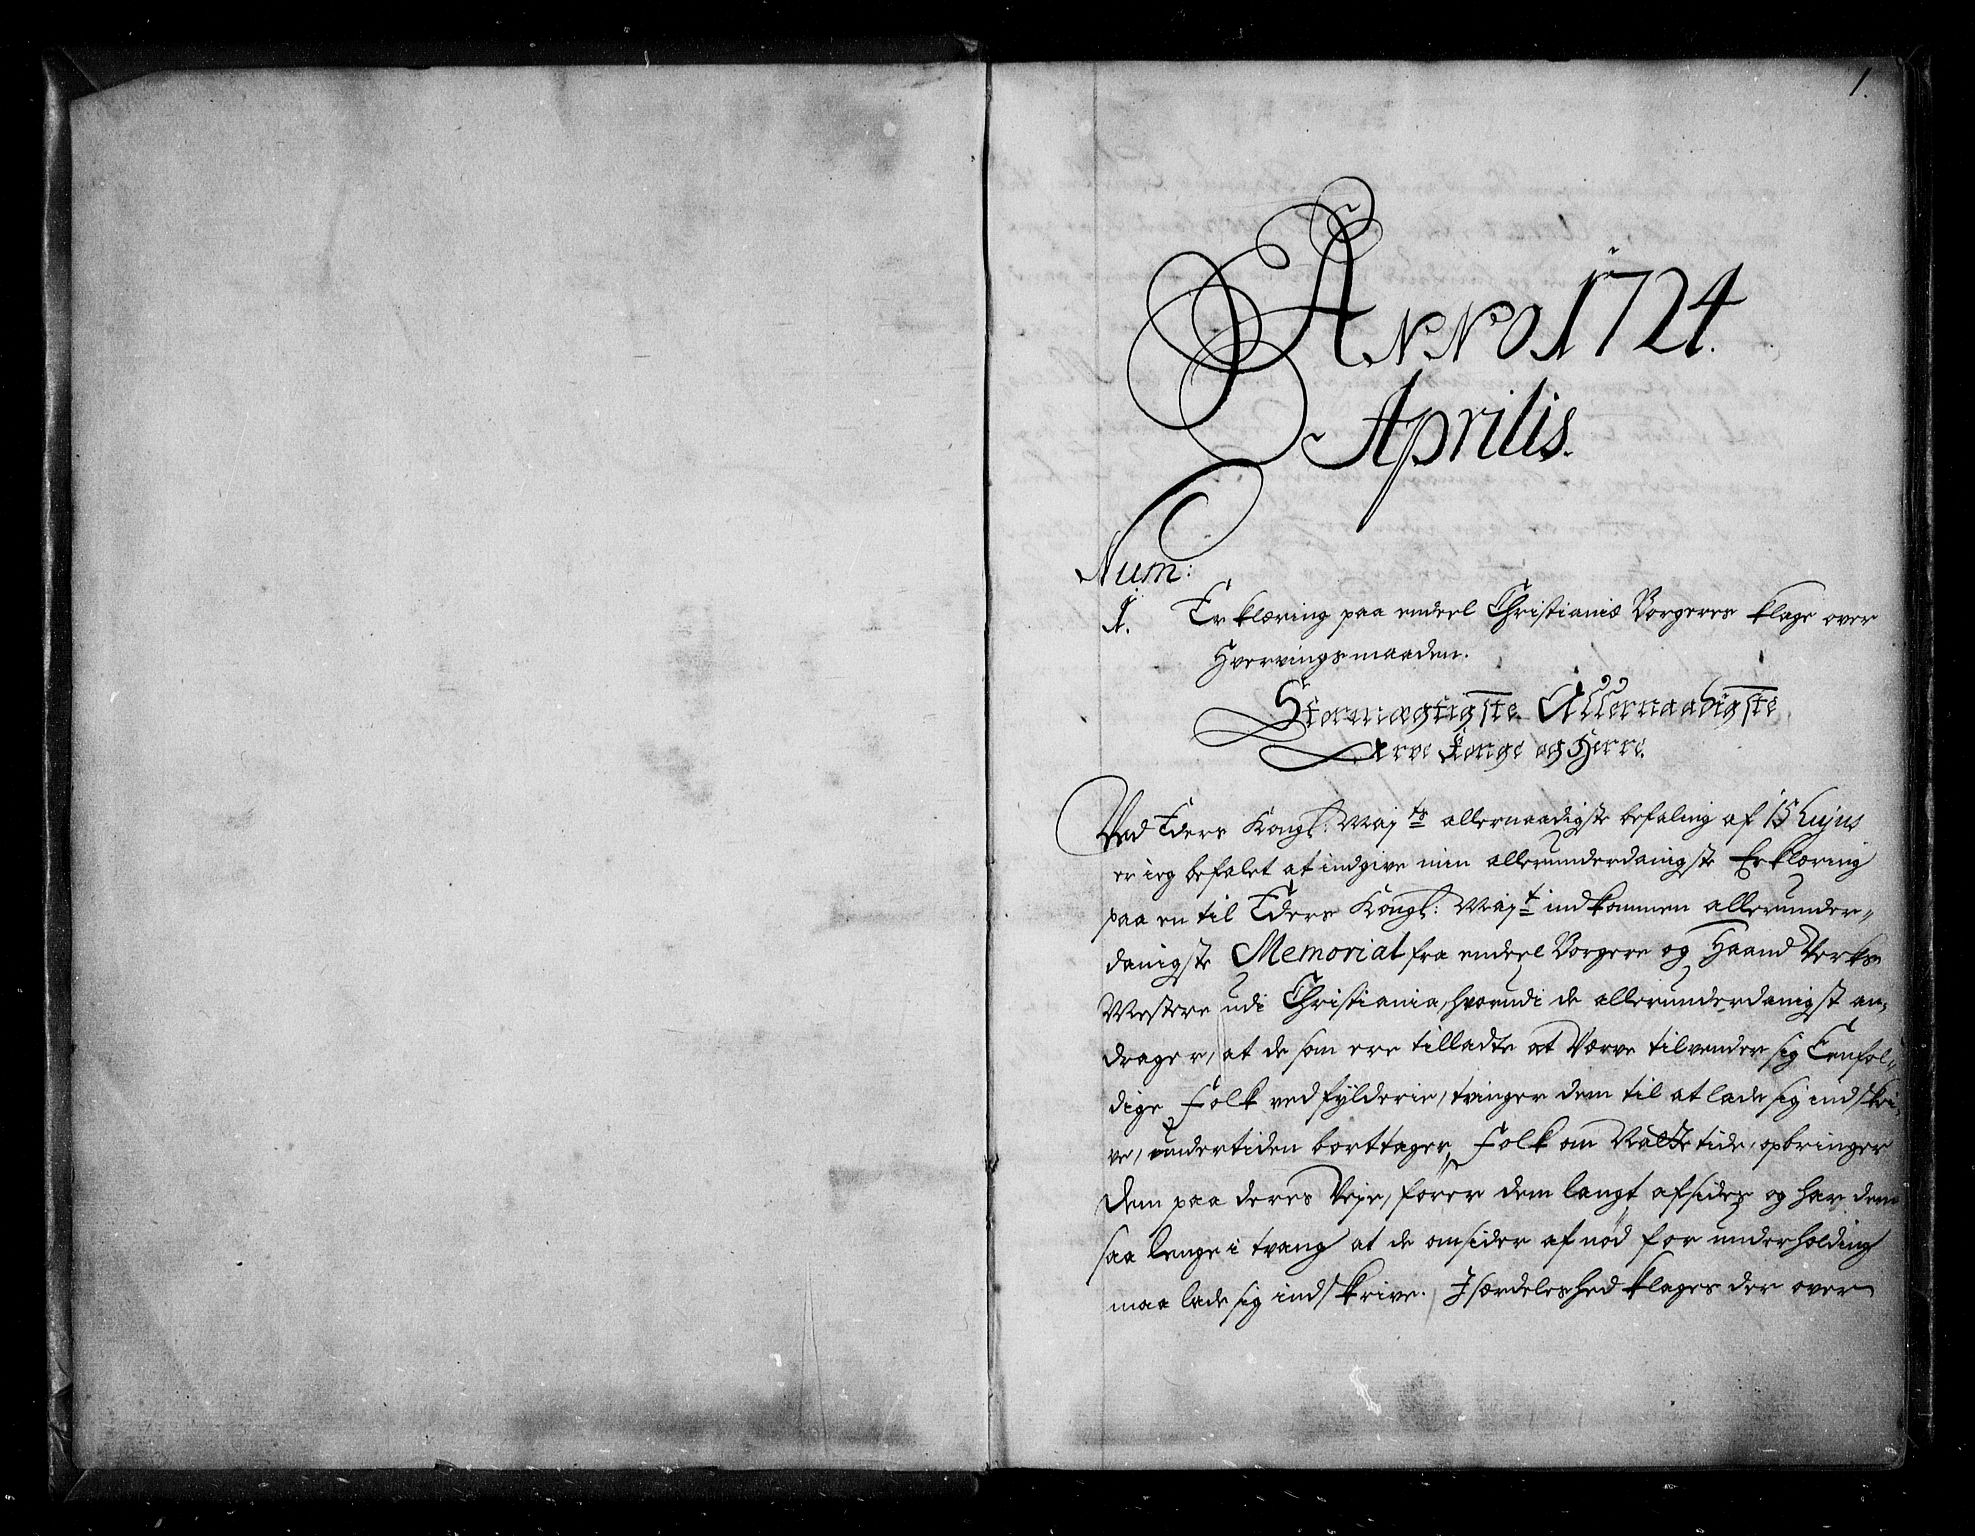 1.
Anno 1724.
Aprilis.
Num:
1. Erklæring paa endeel Christianiæ Borgeres klage over
Hvervings maaden.
Stormægtigste Allernaadigste
Arve Konge og Herre.
Ved Eders Kongl: Mayts allernaadigste befaling af 15 hujus
er ieg befalet at indgive min allerunderdanigste Erklæring
paa en til Eders Kongl: Mayt indkommen allerunder-
danigste Memorial fra endeel Borgere og Haand Verks
Mestere udi Christiania, hvorudi de allerunderdanigst an-
drager, at de som ere tilladte at Værve tilvender sig Eenfol-
dige Folk ved fylderie, tvinger dem til at lade sig indskri-
ve, undertiden borttager Folk om Natte tide, opbringer
dem paa deres Veje, fører dem langt afsides og har dem
saa lenge i tvang at de omsider af nød for underholding
maa lade sig indskrive. Isærdeleshed klages der over